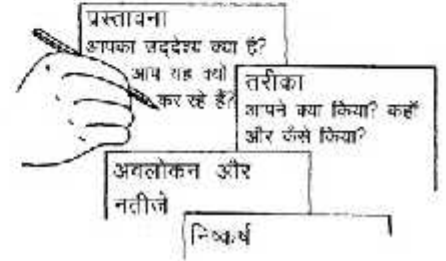 प्रस्तावना
आपका उद्देश्य क्या है?
आप यह क्यों
कर रहे हैं?
तरीका
आपने क्या किया? कहाँ
और कैसे किया?
अवलोकन और
नतीजे
निष्कर्ष